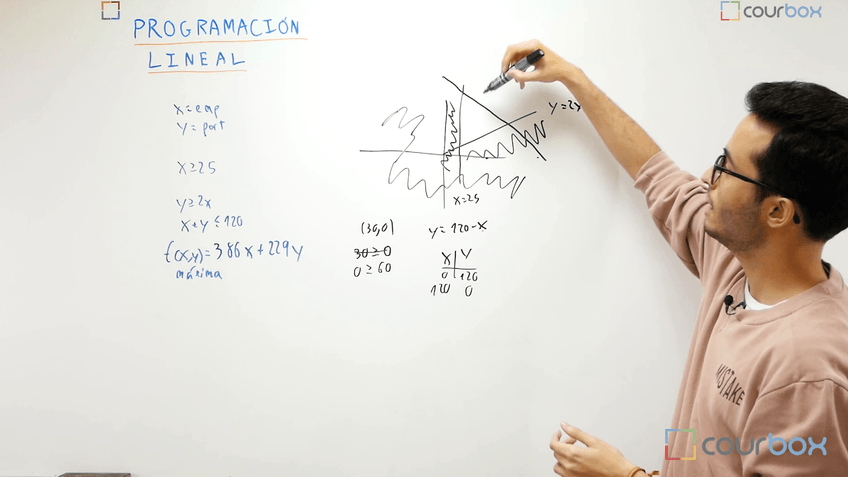 PROGRAMACIÓN
LINEAL
courbox
x = emp
y = port
x ≥ 25
y ≥ 2x
x + y ≤ 120
f(x,y) = 386x + 229y
máxima
y = 2x
x = 25
(30,0)
30 ≥ 0
0 ≥ 60
y = 120 - x
x y
0 120
120 0
MISTAKE
courbox